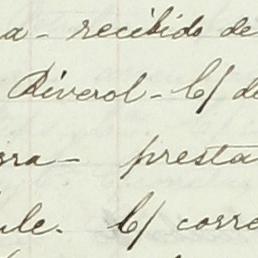 a - recibido de
Riverol - C/ de
rra - presta
ule. C/ corre